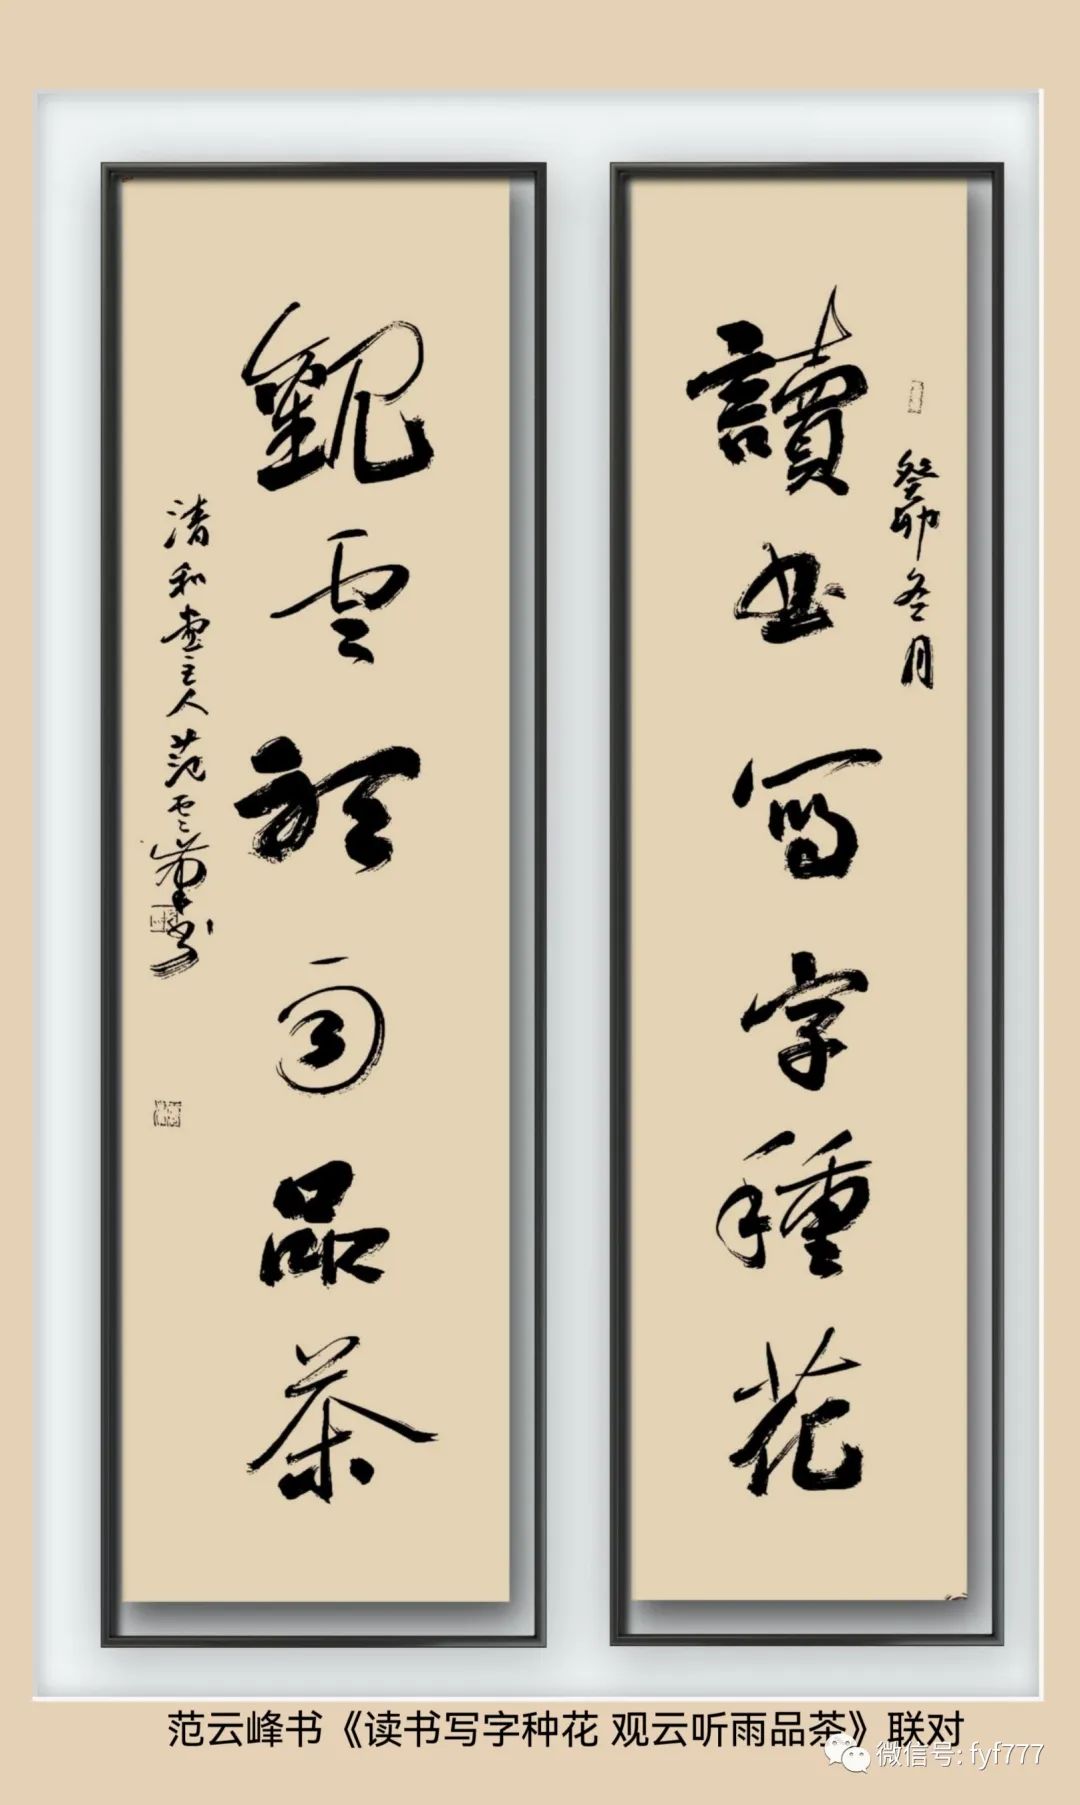 癸卯冬月
讀书写字種花
觀雲聽雨品茶
清和堂主人范雲峰书
范云峰书《读书写字种花 观云听雨品茶》联对
微信号: fyf777